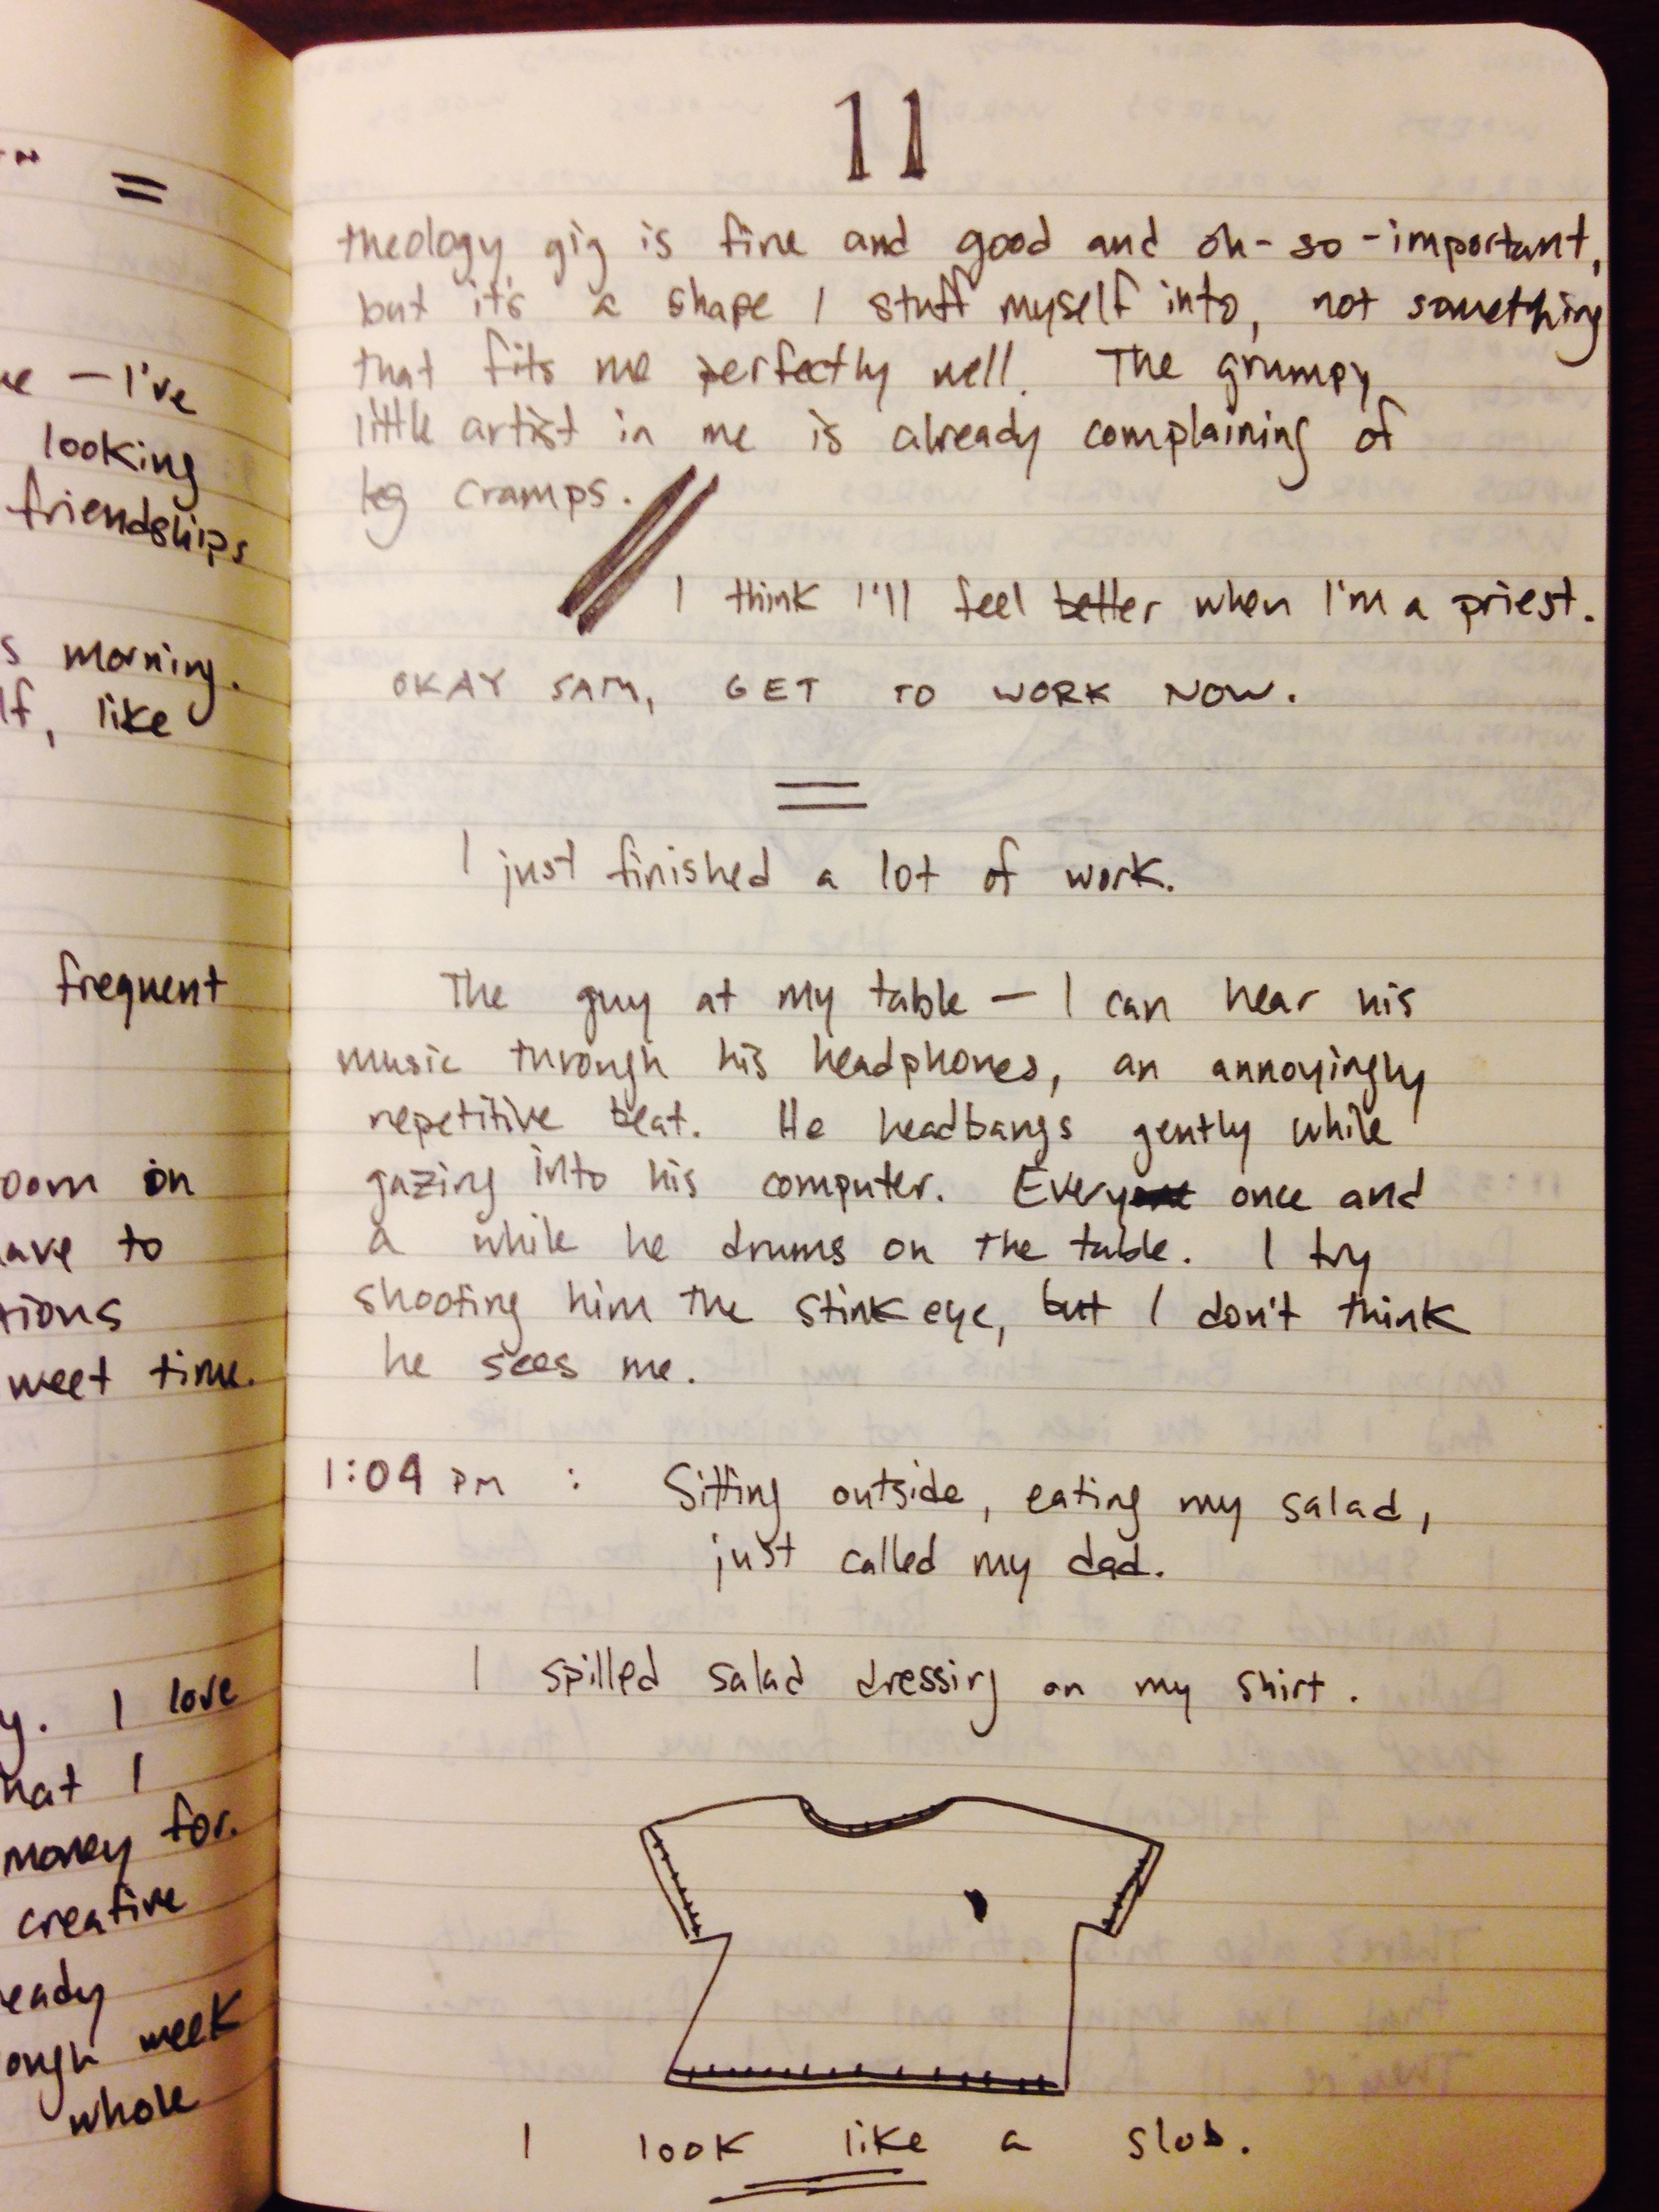 =
— I've
looking
friendships
morning.
, like
frequent
on
to
meet time.
I love
I
money for.
creative
week
whole
11
theology gig is fine and good and oh-so-important,
but it's a shape I stuff myself into, not something
that fits me perfectly well. The grumpy
little artist in me is already complaining of
leg cramps.
I think I'll feel better when I'm a priest.
OKAY SAM, GET TO WORK NOW.
=
I just finished a lot of work.
The guy at my table — I can hear his
music through his headphones, an annoyingly
repetitive beat. He headbangs gently while
gazing into his computer. Every once and
a while he drums on the table. I try
shooting him the stink eye, but I don't think
he sees me.
1:09 PM : Sitting outside, eating my salad,
just called my dad.
I spilled salad dressing on my shirt.
I look like a slob.